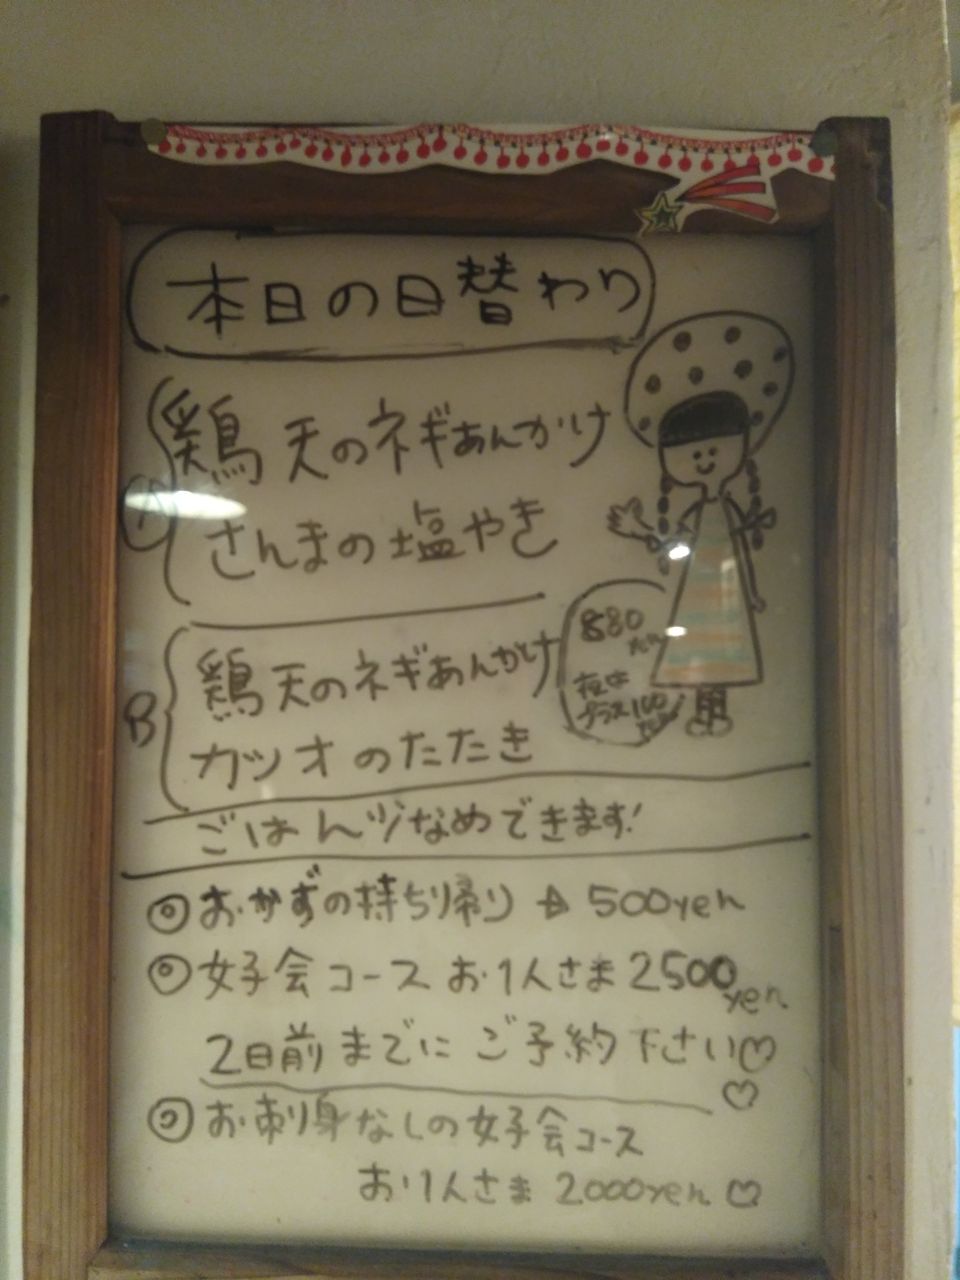 本日の日替わり
A
鶏天のネギあんかけ
さんまの塩やき
B
鶏天のネギあんかけ
カツオのたたき
880
夜は
プラス100
ごはん少なめできます!
◎おかずの持ち帰り → 500yen
◎女子会コース お1人さま2500yen
2日前までにご予約下さい♡♡
◎お刺身なしの女子会コース
お1人さま 2000yen♡